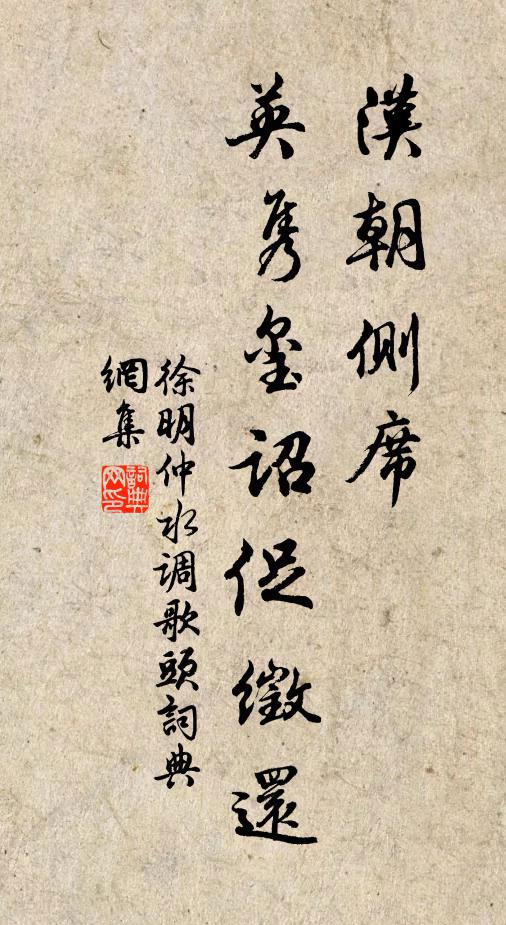 漢朝側席
英隽玺詔促徵還
徐明仲水調歌頭詞典
網集
詞典網印